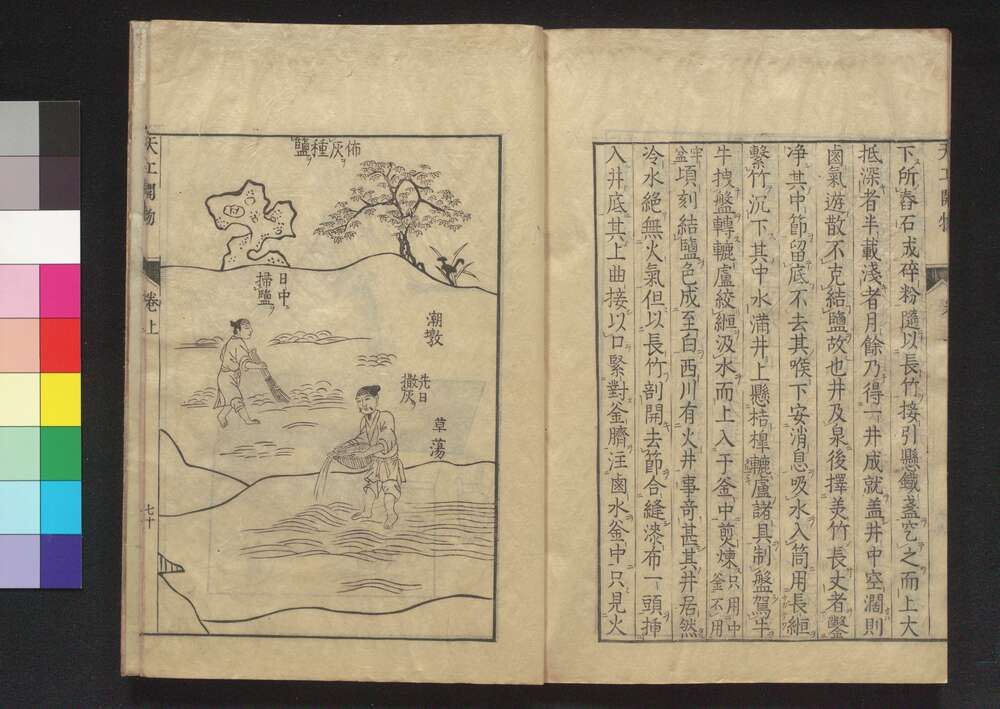 天工開物
下所舂石成碎粉隨以長竹接引懸鐵盞穵之而上大
抵深者半載淺者月餘乃得一井成就盖井中空濶則
鹵氣遊散不克結鹽故也井及泉後擇美竹長丈者鑿
净其中節留底不去其喉下安消息吸水入筒用長絙
繫竹沉下其中水滿井上懸桔橰轆轤諸具制盤駕牛
牛拽盤轉轆轤絞絙汲水而上入于釜中煎煉只用中釜不用
牢盆頃刻結鹽色成至白西川有火井事竒甚其井居然
冷水絕無火氣但以長竹剖開去節合縫漆布一頭揷
入井底其上曲接以口緊對釜臍注鹵水釜中只見火
佈灰種鹽
潮墩
草蕩
先日
撒灰
日中
掃鹽
天工開物
卷上
七十